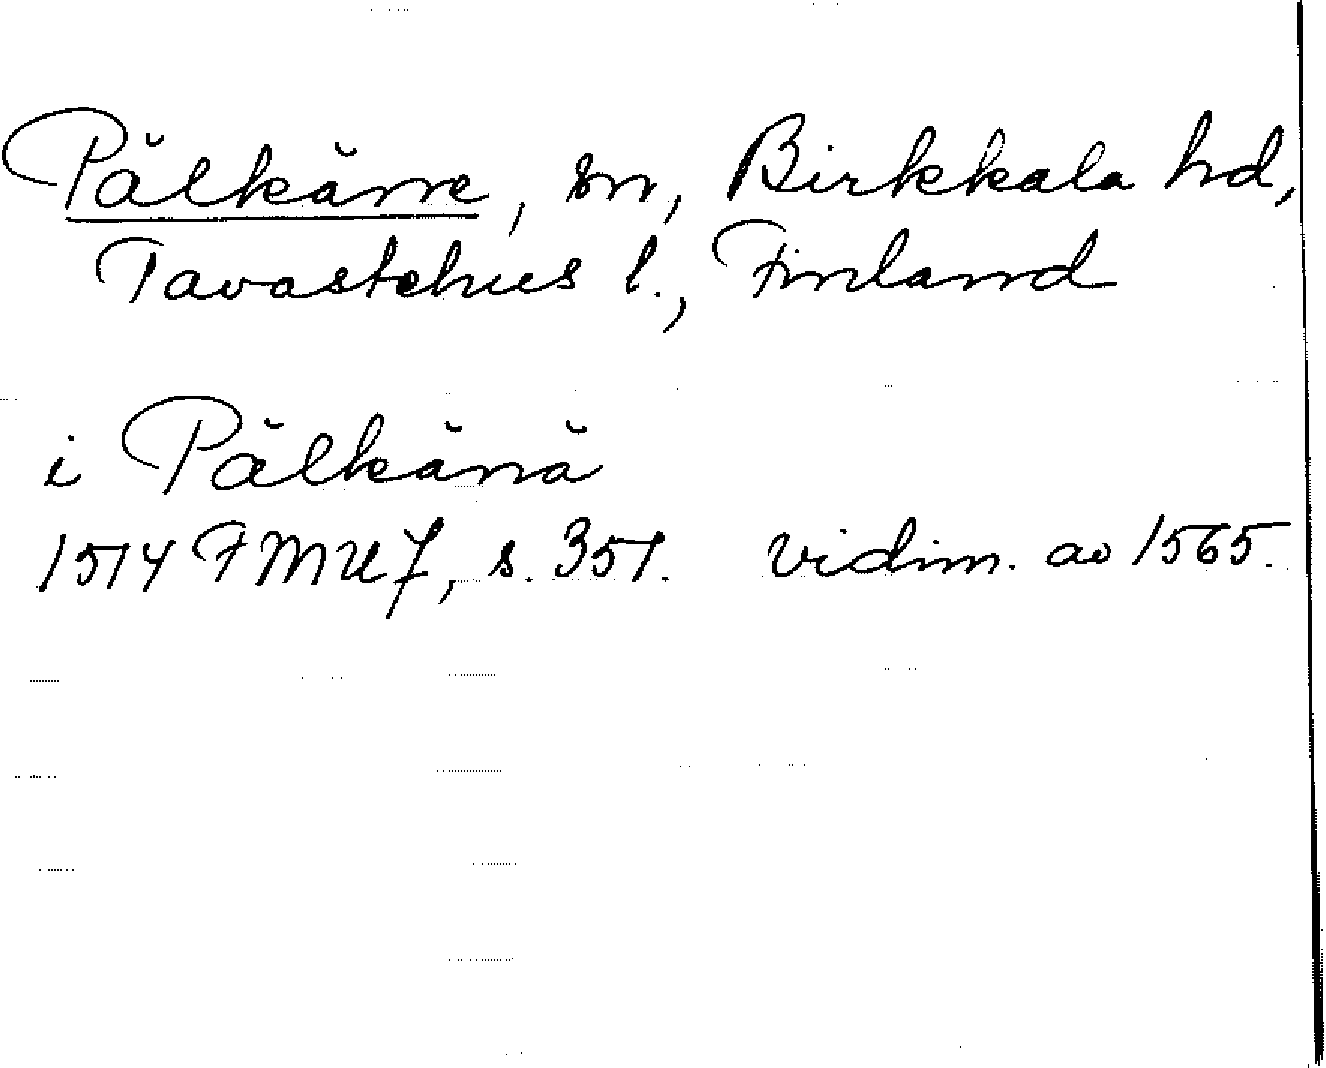 Pälkäne, sn, Birkkala hd,
Tavastehus l., Finland
i Pälkänä
1514 FMU 7, s. 351. vidim. ao 1565.